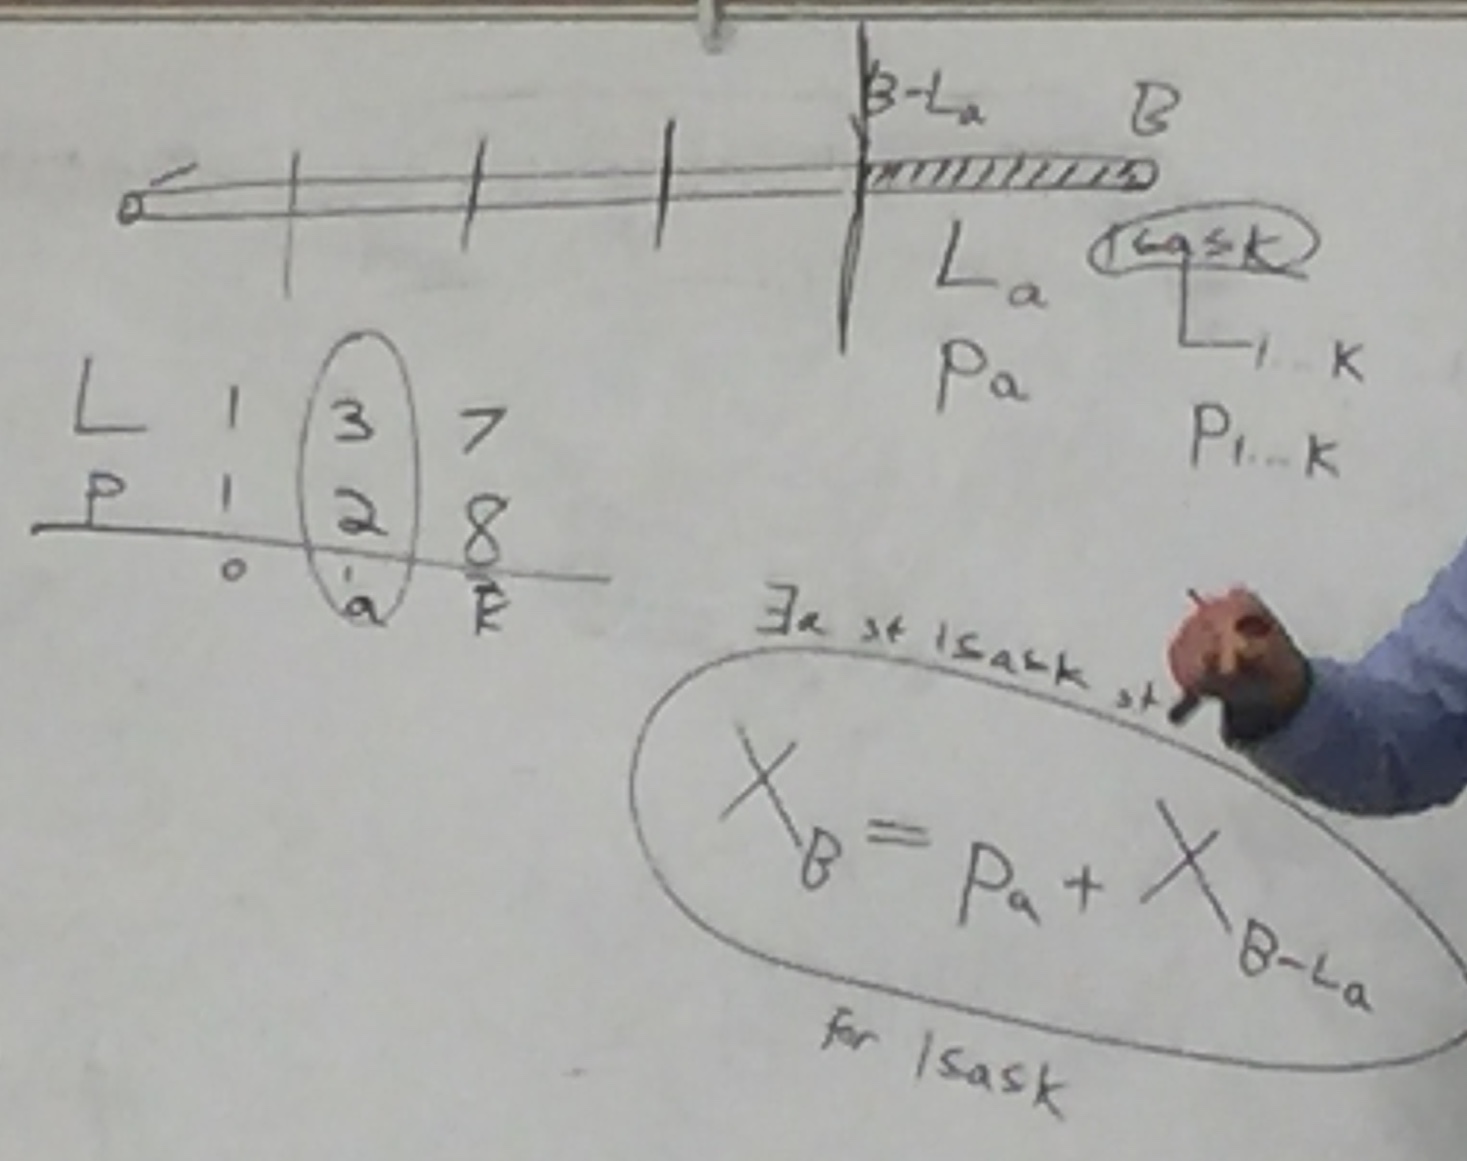 B-La B
La 1≤a≤k
Pa 1...K
P1...K
L 1 3 7
P 1 2 8
0 a k
∃a st 1≤a≤k st
XB = Pa + XB-La
for 1≤a≤k